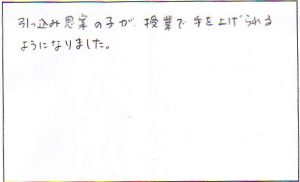 引っ込み思案の子が、授業で手を上げられる
ようになりました。